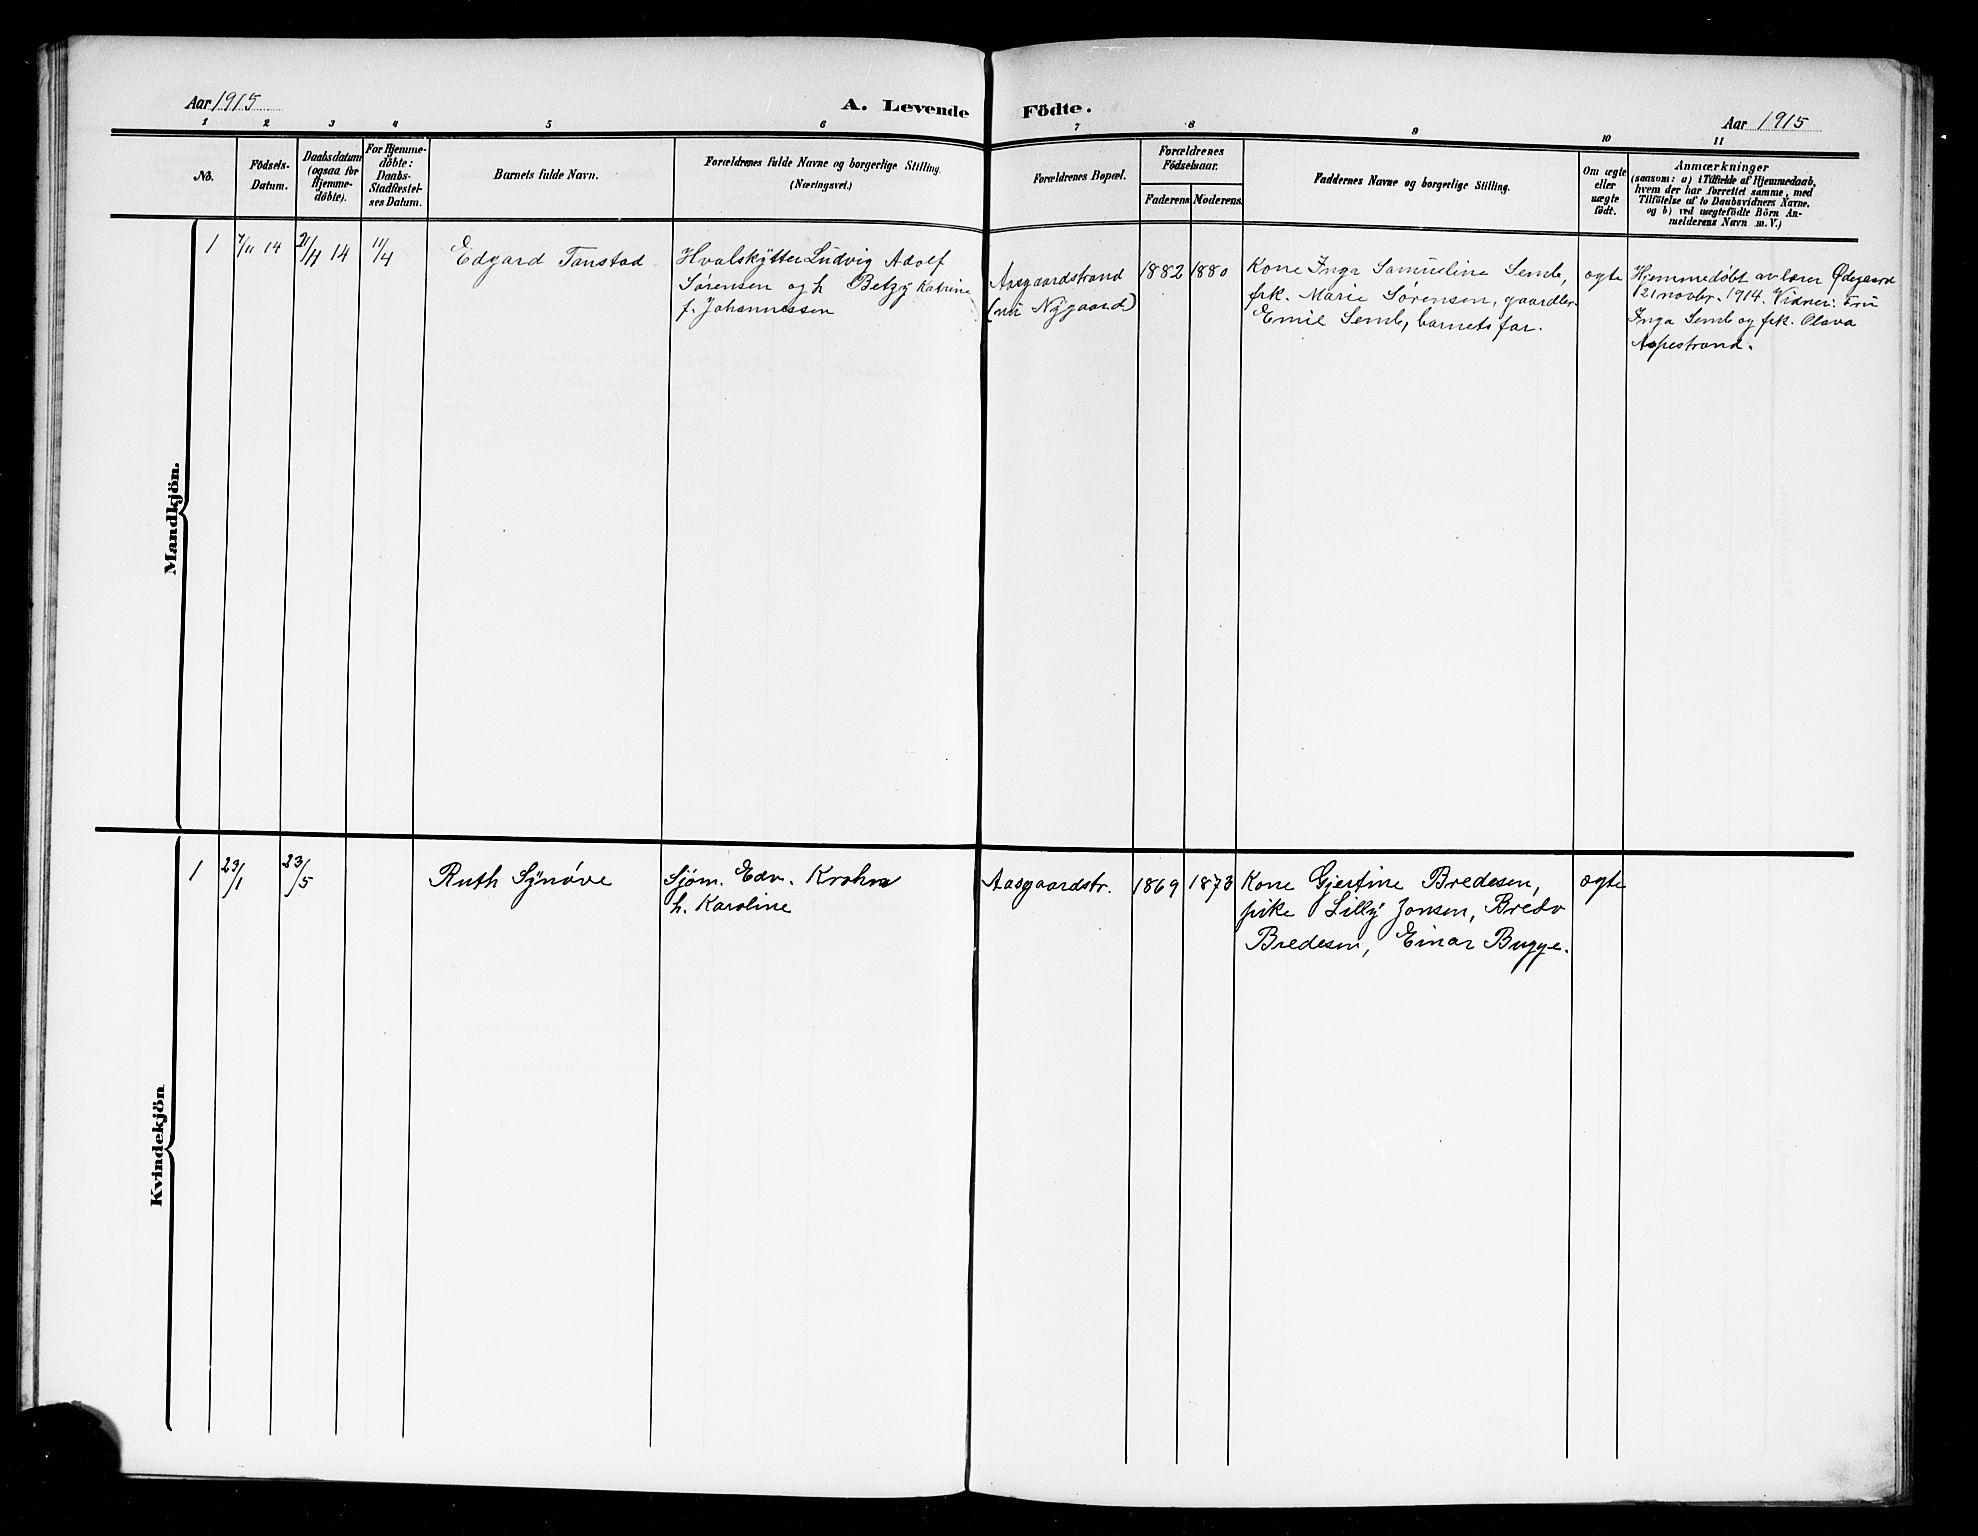 Aar 1915
A. Levende Födte.
Aar 1915
1 2 3 4 5 6 7 8 9 10 11
No.
Födsels-
Datum.
Daabsdatum
(ogsaa for
Hjemme-
döbte).
For Hjemme-
døbte:
Daabs-
Stadfæstel-
ses Datum.
Barnets fulde Navn.
Forældrenes fulde Navne og borgerlige Stilling.
(Næringsvei.)
Forældrenes Bopæl.
Forældrenes
Födselsaar.
Faderens. Moderens.
Faddernes Navne og borgerlige Stilling.
Om ægte
eller
uægte
födt.
Anmærkninger
(saasom: a) i Tilfælde af Hjemmedaab,
hvem der har forrettet samme, med
Tilföielse af to Daabsvidners Navne,
og b) ved uægtefödte Börn An-
melderens Navn m. V.)
Mandkjön.
1
7/11 14
21/11 14
11/4
Edgard Tanstad
Hvalskytter Ludvig Adolf
Sørensen og h Betzy Katrine
f. Johannessen
Aasgaardstrand
(nu Nygaard)
1882 1880
Kone Inga Samueline Semb,
frk. Marie Sørensen, gaardbr.
Emil Semb, barnets far.
ægte
Hjemmedøbt av lærer Ødegaard
21 novbr. 1914. Vidner: Fru
Inga Semb og frk. Olava
Aspestrand.
Kvindekjön
1
23/1
23/5
Ruth Synøve
Sjøm. Edv. Krohn
h. Karoline
Aasgaardstr.
1869 1873
Kone Gjertine Bredesen,
pike Lilly Jansen, Bredo
Bredesen, Einar Bugge.
ægte